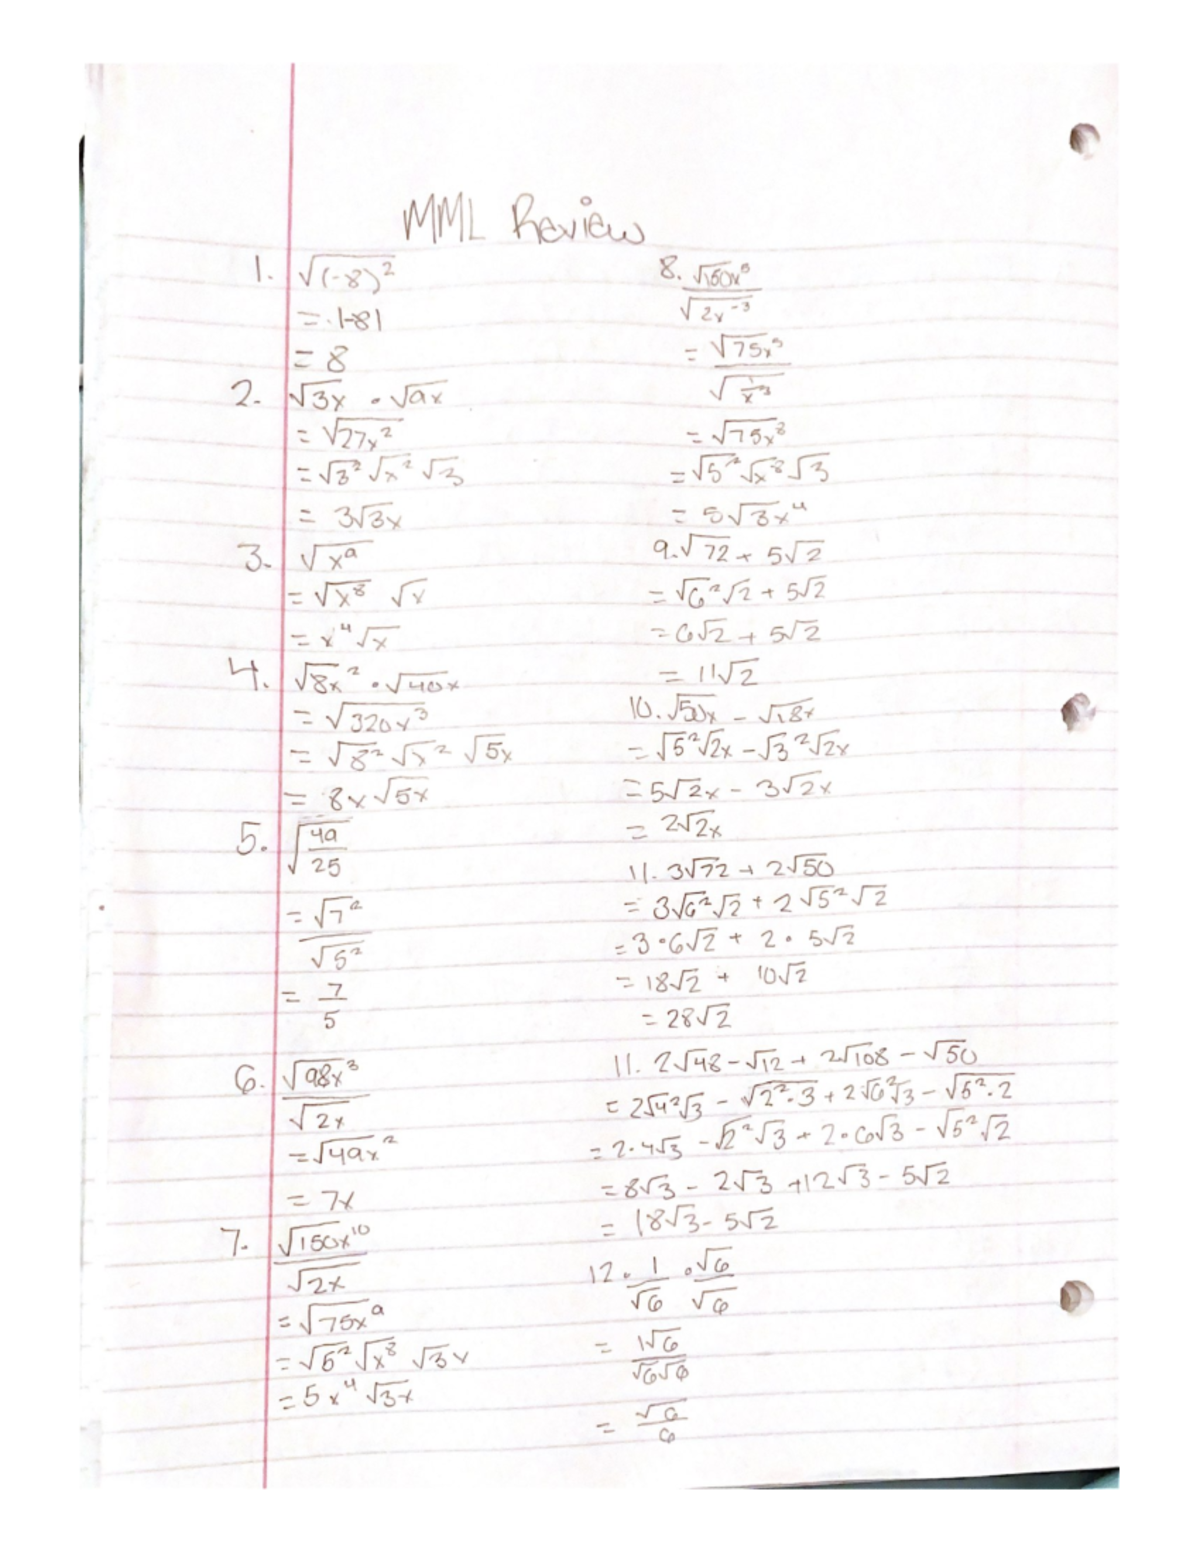 MML Review
1. √(-8)²
= |-8|
= 8
2. √3x · √9x
= √27x²
= √3² √x² √3
= 3√3x
3. √x⁹
= √x⁸ √x
= x⁴√x
4. √8x² · √40x
= √320x³
= √8² √x² √5x
= 8x√5x
5. √49/25
= √7²/√5²
= 7/5
6. √98x³/√2x
= √49x²
= 7x
7. √150x¹⁰/√2x
= √75x⁹
= √5² √x⁸ √3x
= 5x⁴ √3x
8. √150x⁵/√2x⁻³
= √75x⁵/√(1/x³)
= √75x⁸
= √5² √x⁸ √3
= 5√3x⁴
9. √72 + 5√2
= √6² √2 + 5√2
= 6√2 + 5√2
= 11√2
10. √50x - √18x
= √5² √2x - √3² √2x
= 5√2x - 3√2x
= 2√2x
11. 3√72 + 2√50
= 3√6² √2 + 2√5² √2
= 3·6√2 + 2·5√2
= 18√2 + 10√2
= 28√2
11. 2√48 - √12 + 2√108 - √50
= 2√4² √3 - √2²·3 + 2√6² √3 - √5²·2
= 2·4√3 - √2² √3 + 2·6√3 - √5² √2
= 8√3 - 2√3 + 12√3 - 5√2
= 18√3 - 5√2
12. 1/√6 · √6/√6
= 1√6/√6√6
= √6/6